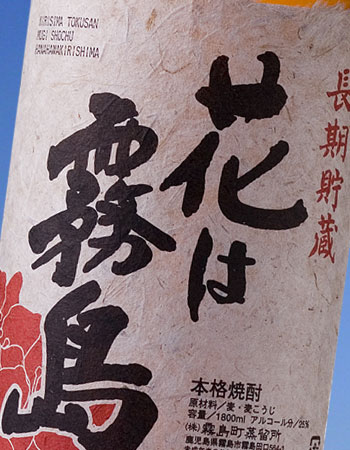 KIRISIMA TOKUSAN
MUGI SHOCHU
HANAHAWAKIRISHIMA
長期貯蔵
花は
霧島
本格焼酎
原材料/麦・麦こうじ
容量/1800ml アルコール分/25%
(株)霧島町蒸留所
鹿児島県霧島市霧島田口564-1